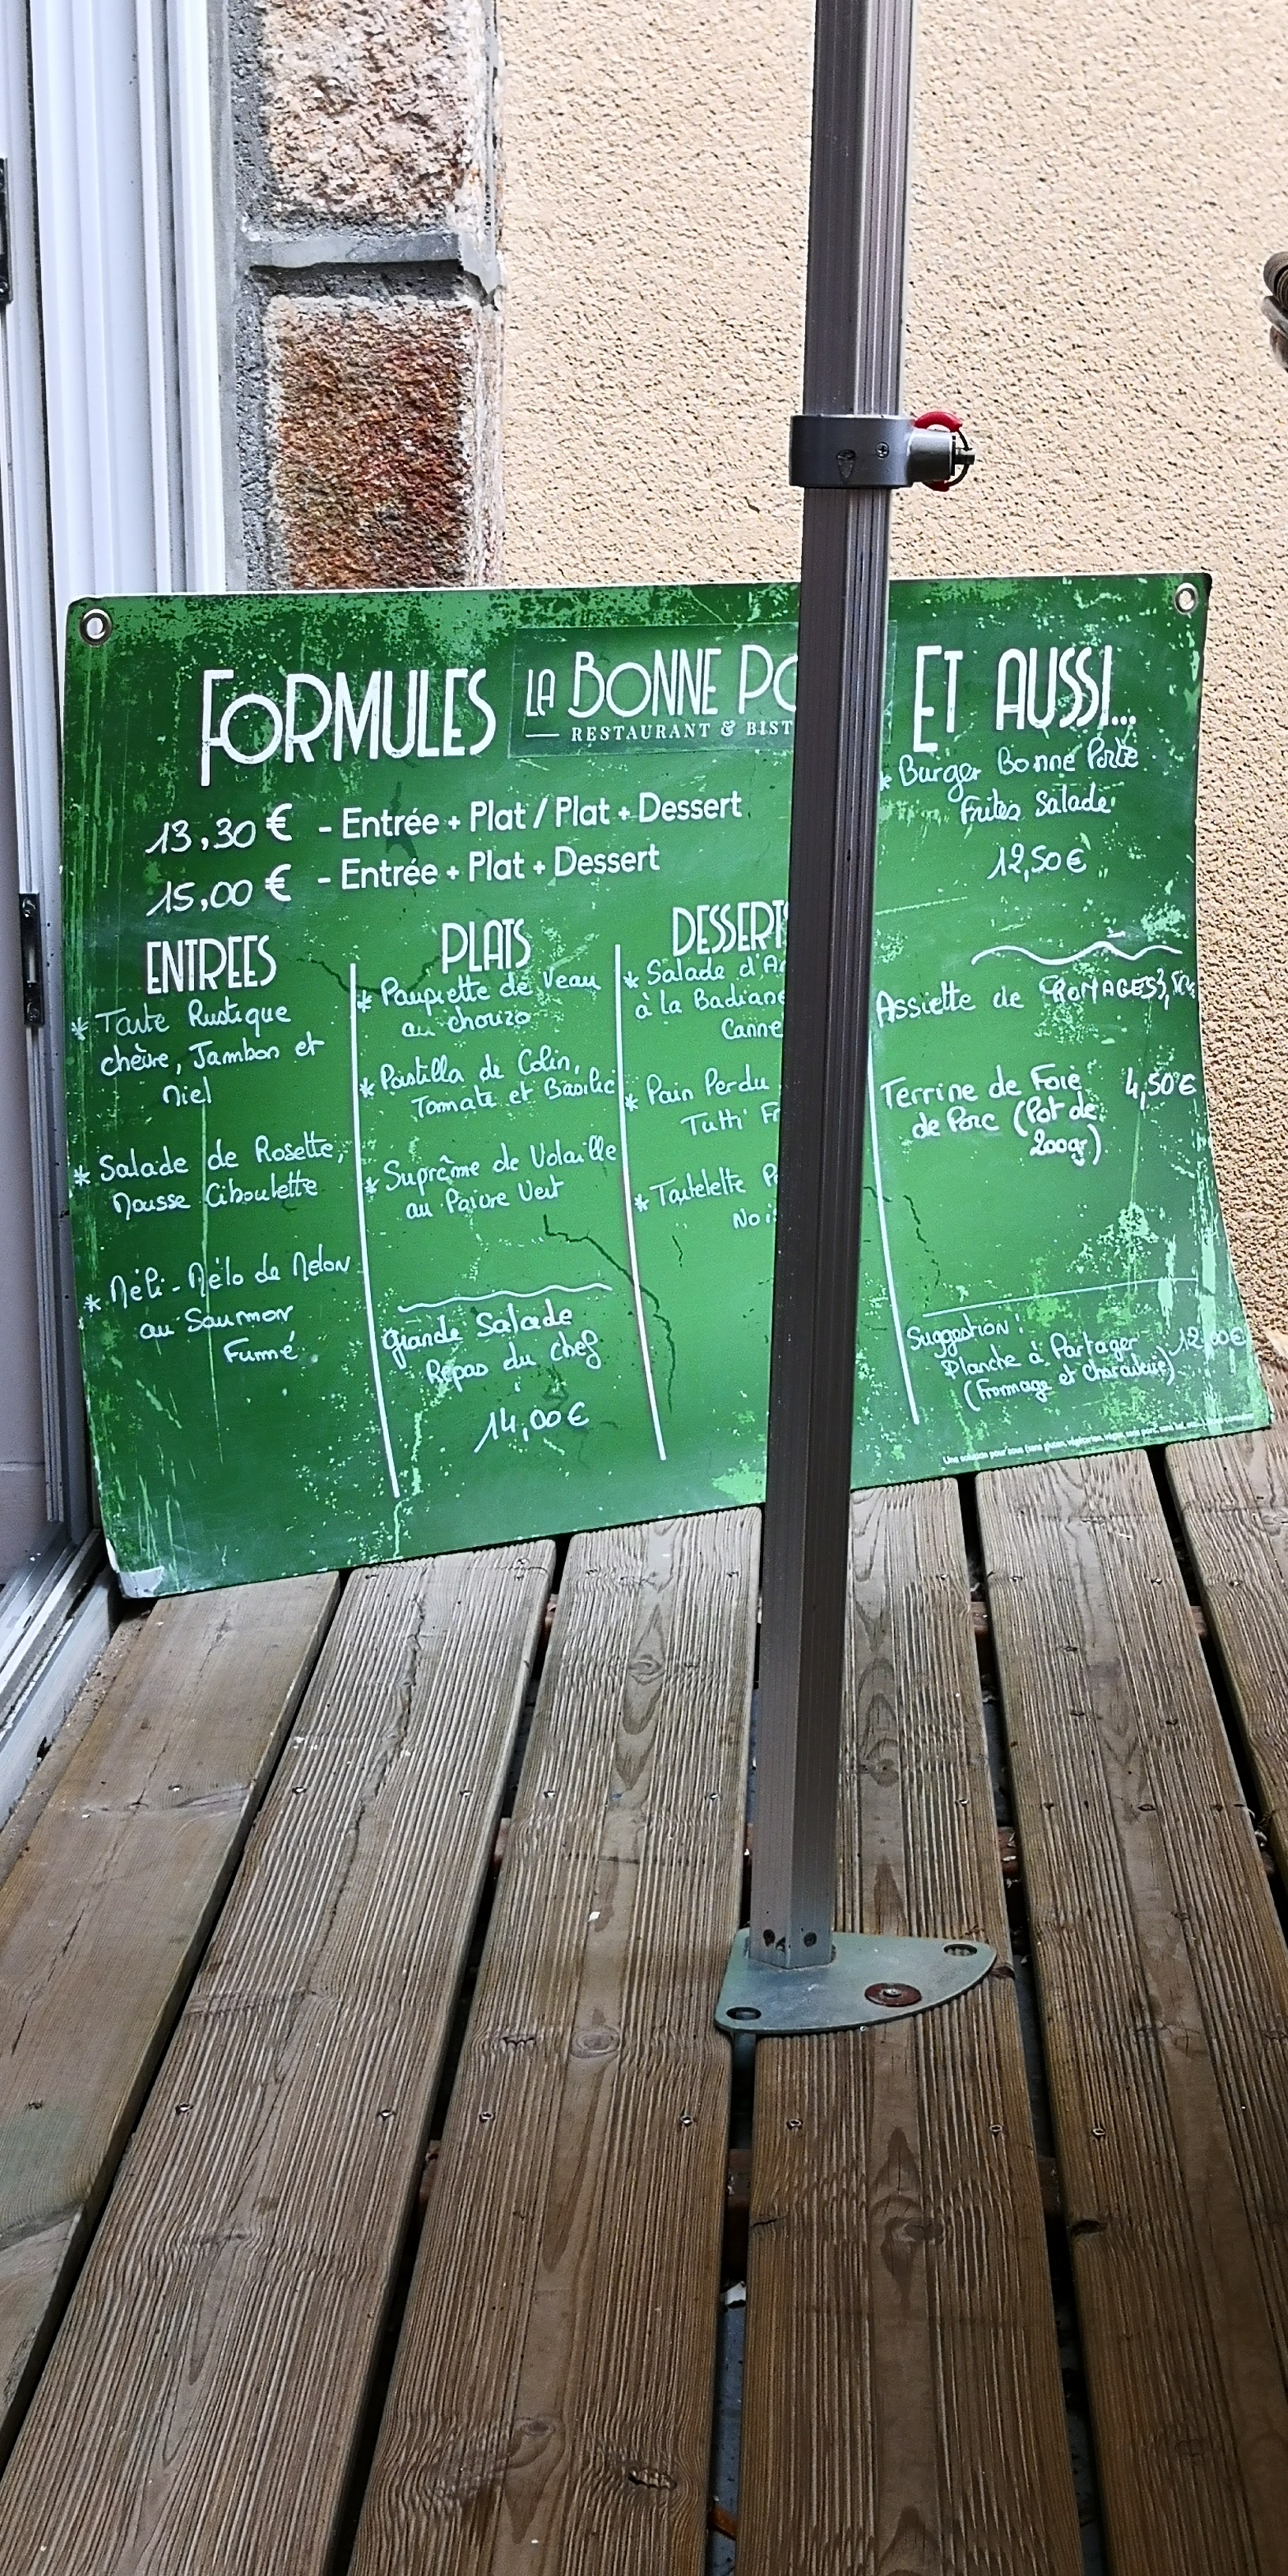 FORMULES
LA BONNE
RESTAURANT &
13,30 € - Entrée + Plat / Plat + Dessert
15,00 € - Entrée + Plat + Dessert
ENTREES
* Tarte Rustique
chèvre, Jambon et
Miel
* Salade de Rosette,
Mousse Ciboulette
* Méli-Mélo de Melon
au Saumon
Fumé
PLATS
* Paupiette de Veau
au chorizo
* Pastilla de Colin,
Tomate et Basilic
* Suprême de Volaille
au Poivre Vert
Grande Salade
Repas du chef
14,00 €
DESSERTS
* Salade
à la Badiane
Canne
* Pain Perdu
Tutti
* Tartelette
ET AUSSI...
* Burger Bonne Porte
Frites Salade
12,50 €
Assiette de FROMAGES
Terrine de Foie 4,50 €
de Porc (Pot de
200gr)
Suggestion :
Planche à Partager 12,00 €
(Fromage et Charcuterie)
Une solution pour tous (sans gluten, végétarien, végan, sans porc, sans